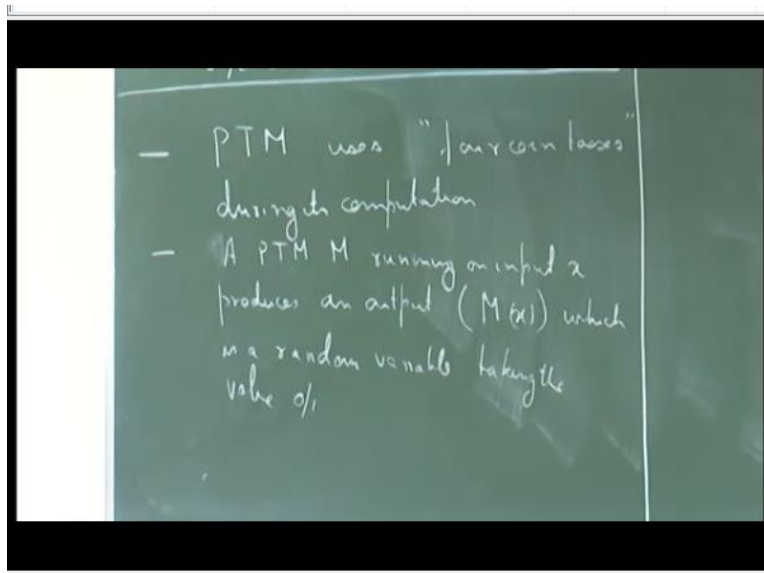 — PTM uses "fair coin tosses"
during its computation
— A PTM M running on input x
produces an output (M(x)) which
is a random variable taking the
value 0/1